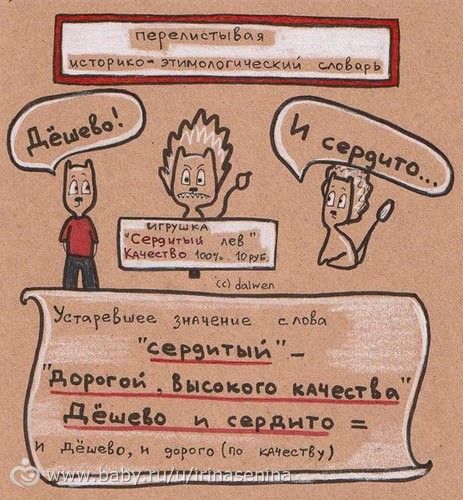 перелистывая
историко-этимологический словарь
Дёшево!
И сердито...
ИГРУШКА
"Сердитый лев"
КАЧЕСТВО 100%. 10 РУБ.
(c) dalwen
Устаревшее значение слова
"сердитый" –
"Дорогой, высокого качества"
Дёшево и сердито =
и дёшево, и дорого (по качеству)
www.baby.ru/u/irinasenina